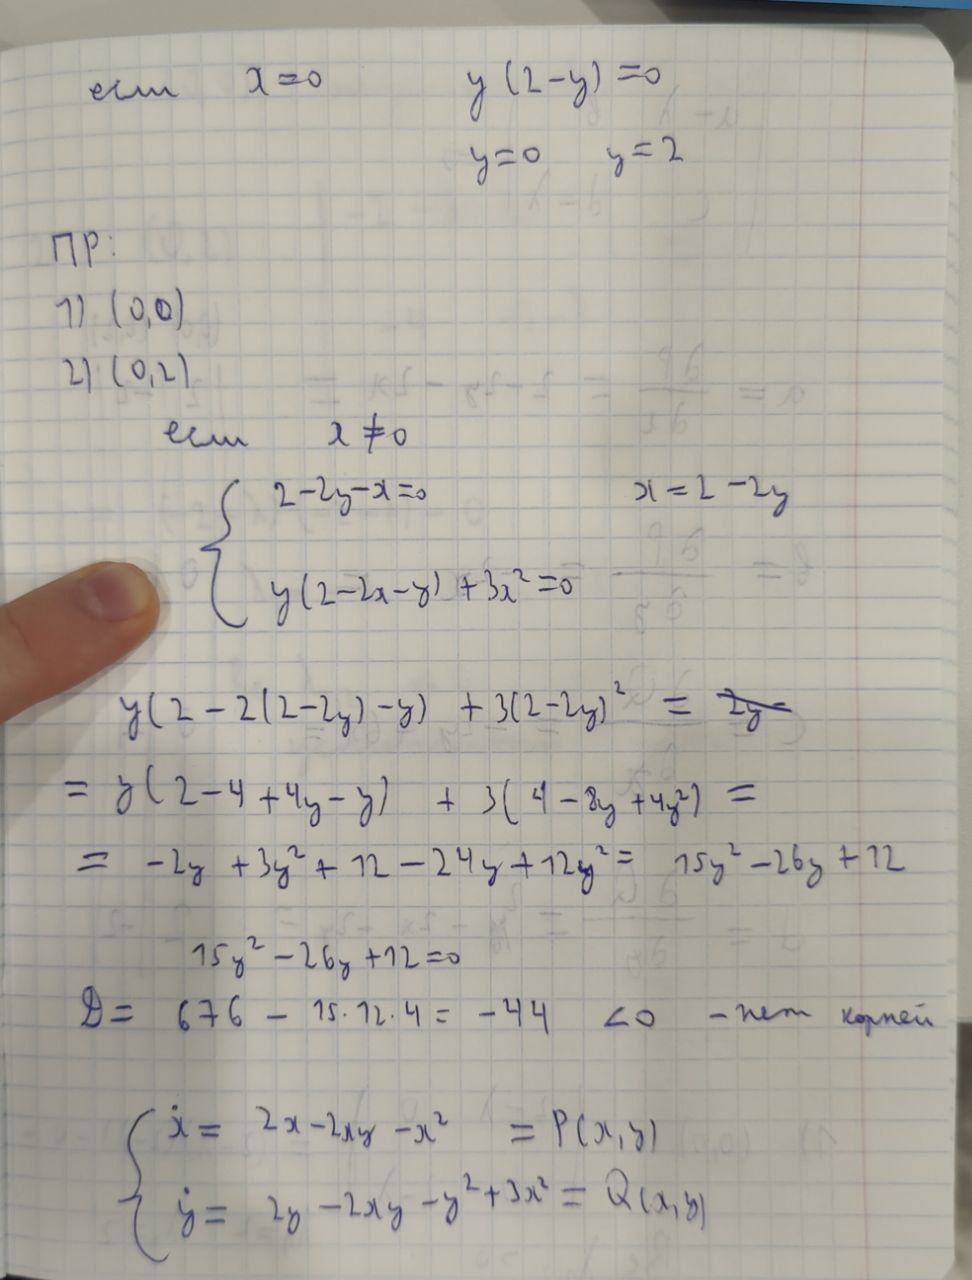 если x=0 y(2-y)=0
y=0 y=2
ПР:
1) (0,0)
2) (0,2)
если x≠0
2-2y-x=0 x=2-2y
y(2-2x-y)+3x²=0
y(2-2(2-2y)-y) +3(2-2y)² =
= y(2-4+4y-y) + 3(4-8y+4y²) =
= -2y+3y²+12-24y+12y²= 15y²-26y+12
15y²-26y+12=0
D= 676-15·12·4=-44 <0 -нет корней
ẋ= 2x-2xy-x² =P(x,y)
ẏ= 2y-2xy-y²+3x²=Q(x,y)